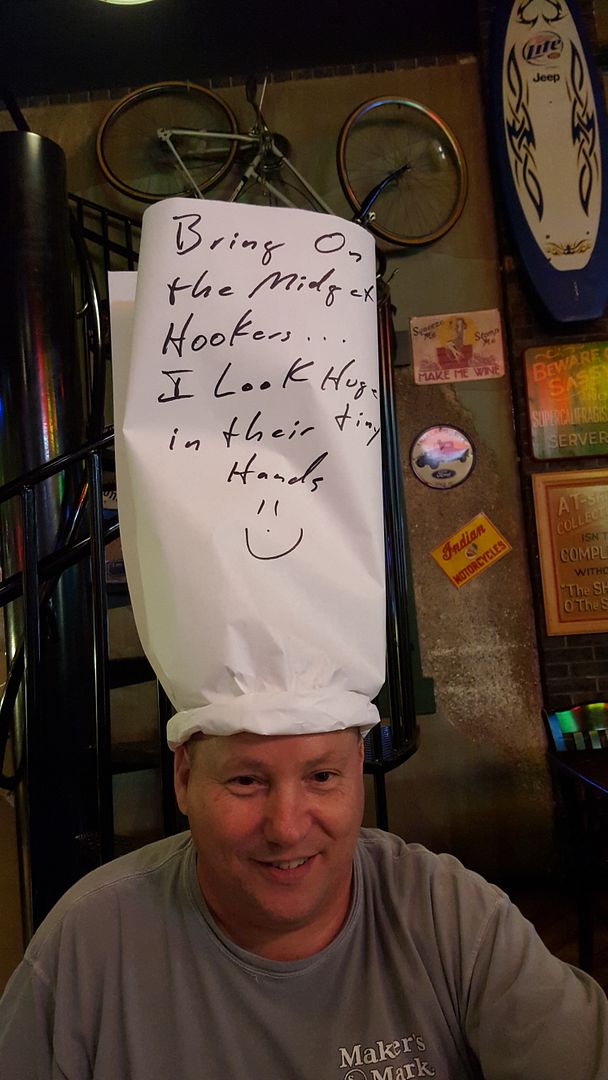 Bring On
the Midget
Hookers...
I Look Huge
in their tiny
Hands
Lite
Jeep
Squeeze Me
Stomp Me
MAKE ME WINE
Ford
Indian
MOTORCYCLES
BEWARE
SASSY
SERVER
COLLEC
ISN'T
COMPL
WITHO
"The SH
O'The S
Maker's
Mark